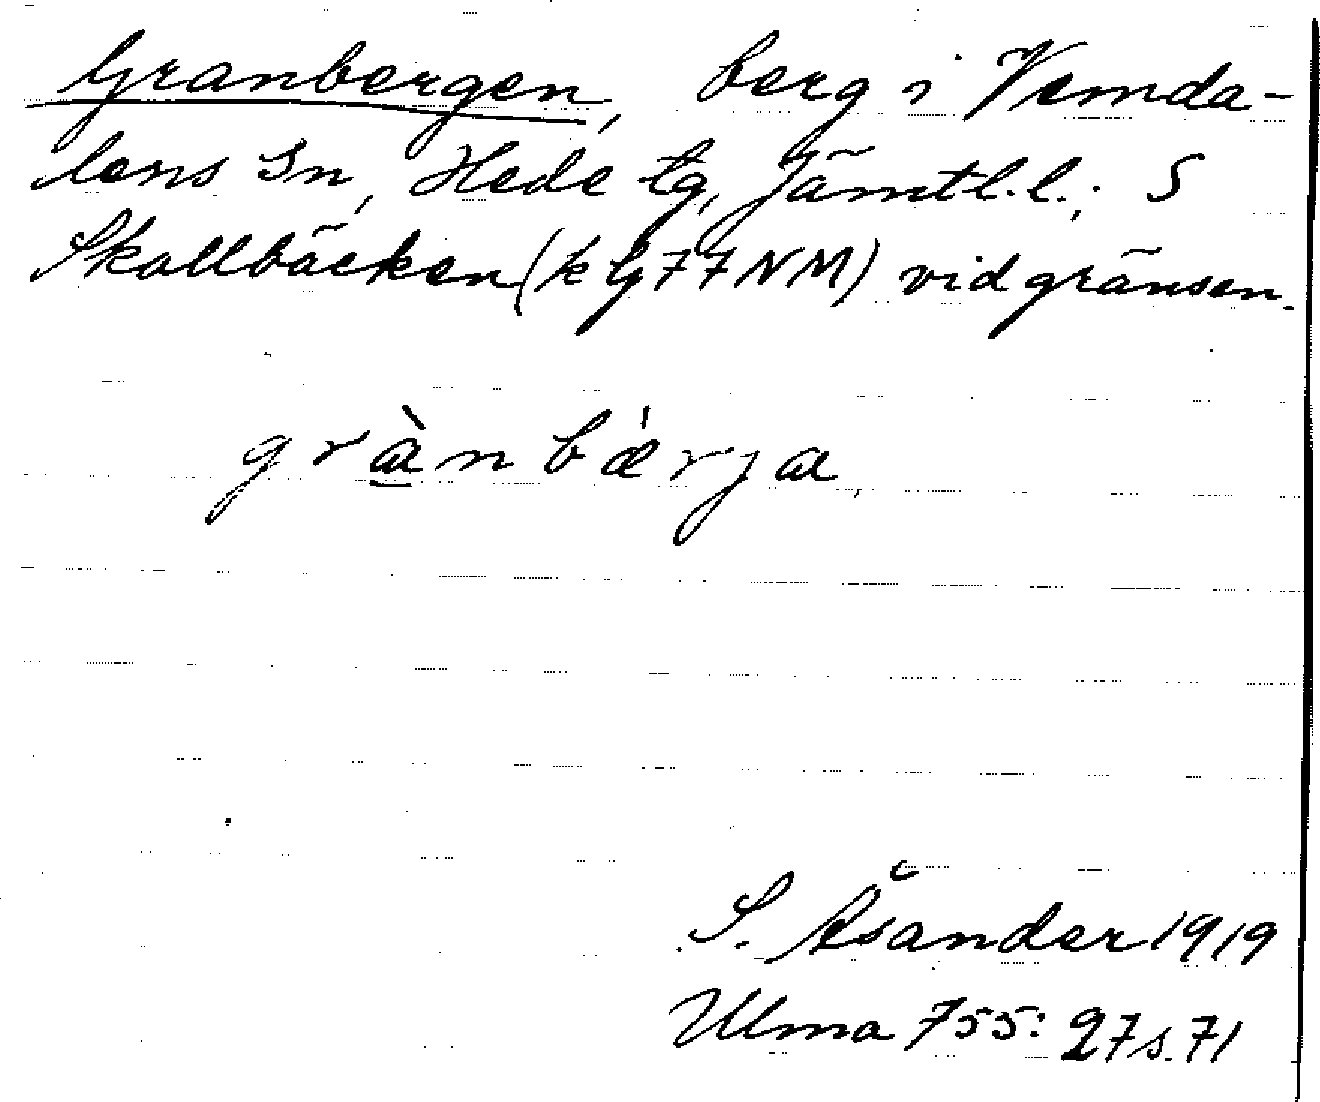 Granbergen, berg i Vemda-
lens sn, Hede tg, Jämtl.l.; S
Skallbäcken (kbl 77 NM) vid gränsen.
grànbǽrja
S. Åsander 1919
Ulma 755:27 s. 71